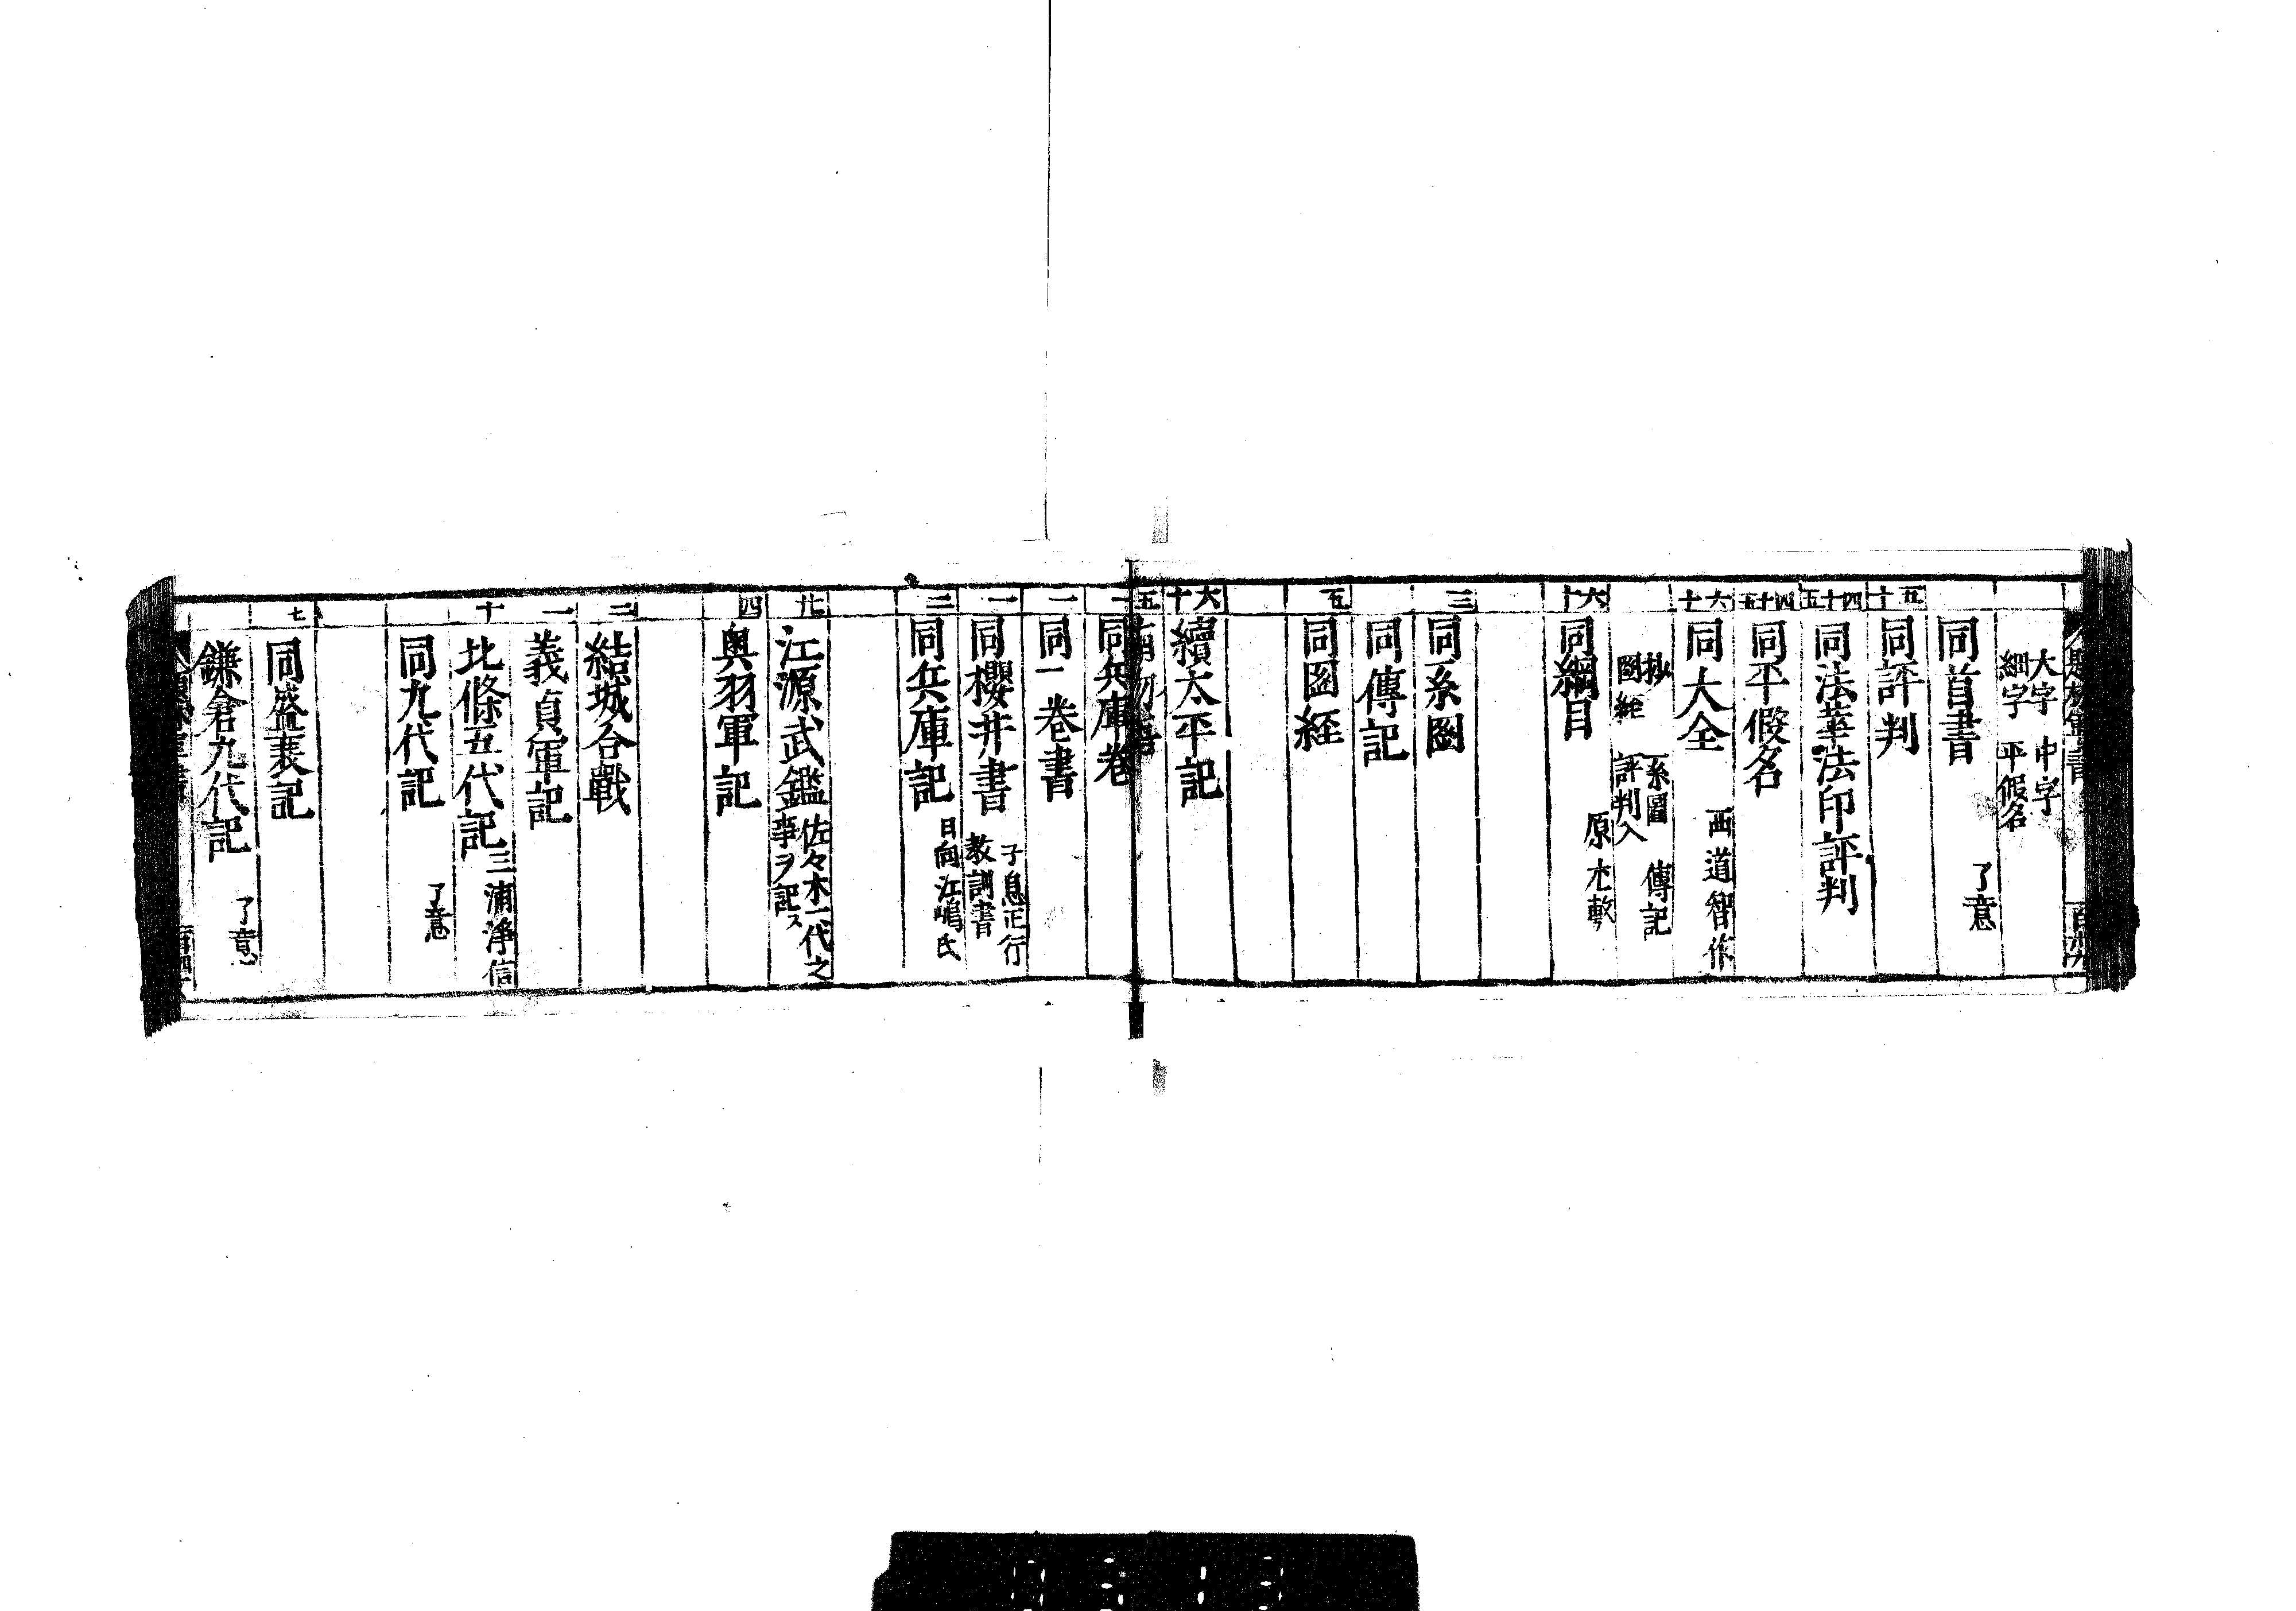 大字 中字
細字 平假名
同首書 了意
五十 同評判
四十五 同法華法印評判
四十五 同平假名
六十 同大全 西道智作
抄 系圖 傳記
圖經 評判入
六十 同綱目 原尤軒
三 同系圖
同傳記
五 同圖経
六十 續太平記
五
一 同兵庫巻
一 同一巻書
一 同櫻井書 子息正行
教訓書
三 同兵庫記 日向江嶋氏
廿 江源武鑑 佐々木一代之
事ヲ記ス
四 奥羽軍記
二 結城合戰
一 義貞軍記
十 北條五代記 三浦浄信
同九代記 了意
七 同盛衰記
鎌倉九代記 了意